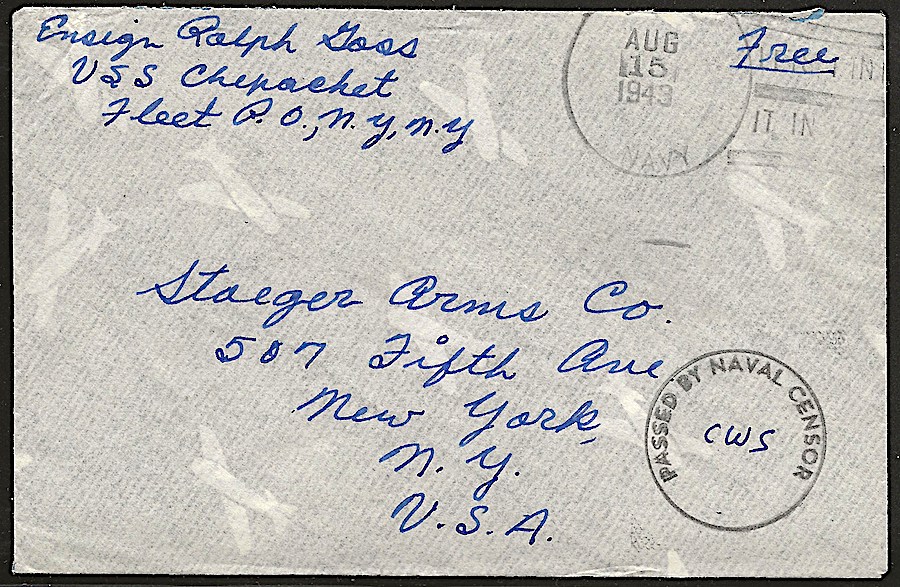 Ensign Ralph Goss
USS Chepachet
Fleet P.O., N.Y., N.Y
Free
AUG
15
1943
NAVY
IN
IT IN
Stoeger Arms Co.
507 Fifth Ave
New York,
N.Y.
U.S.A.
PASSED BY NAVAL CENSOR
CWS